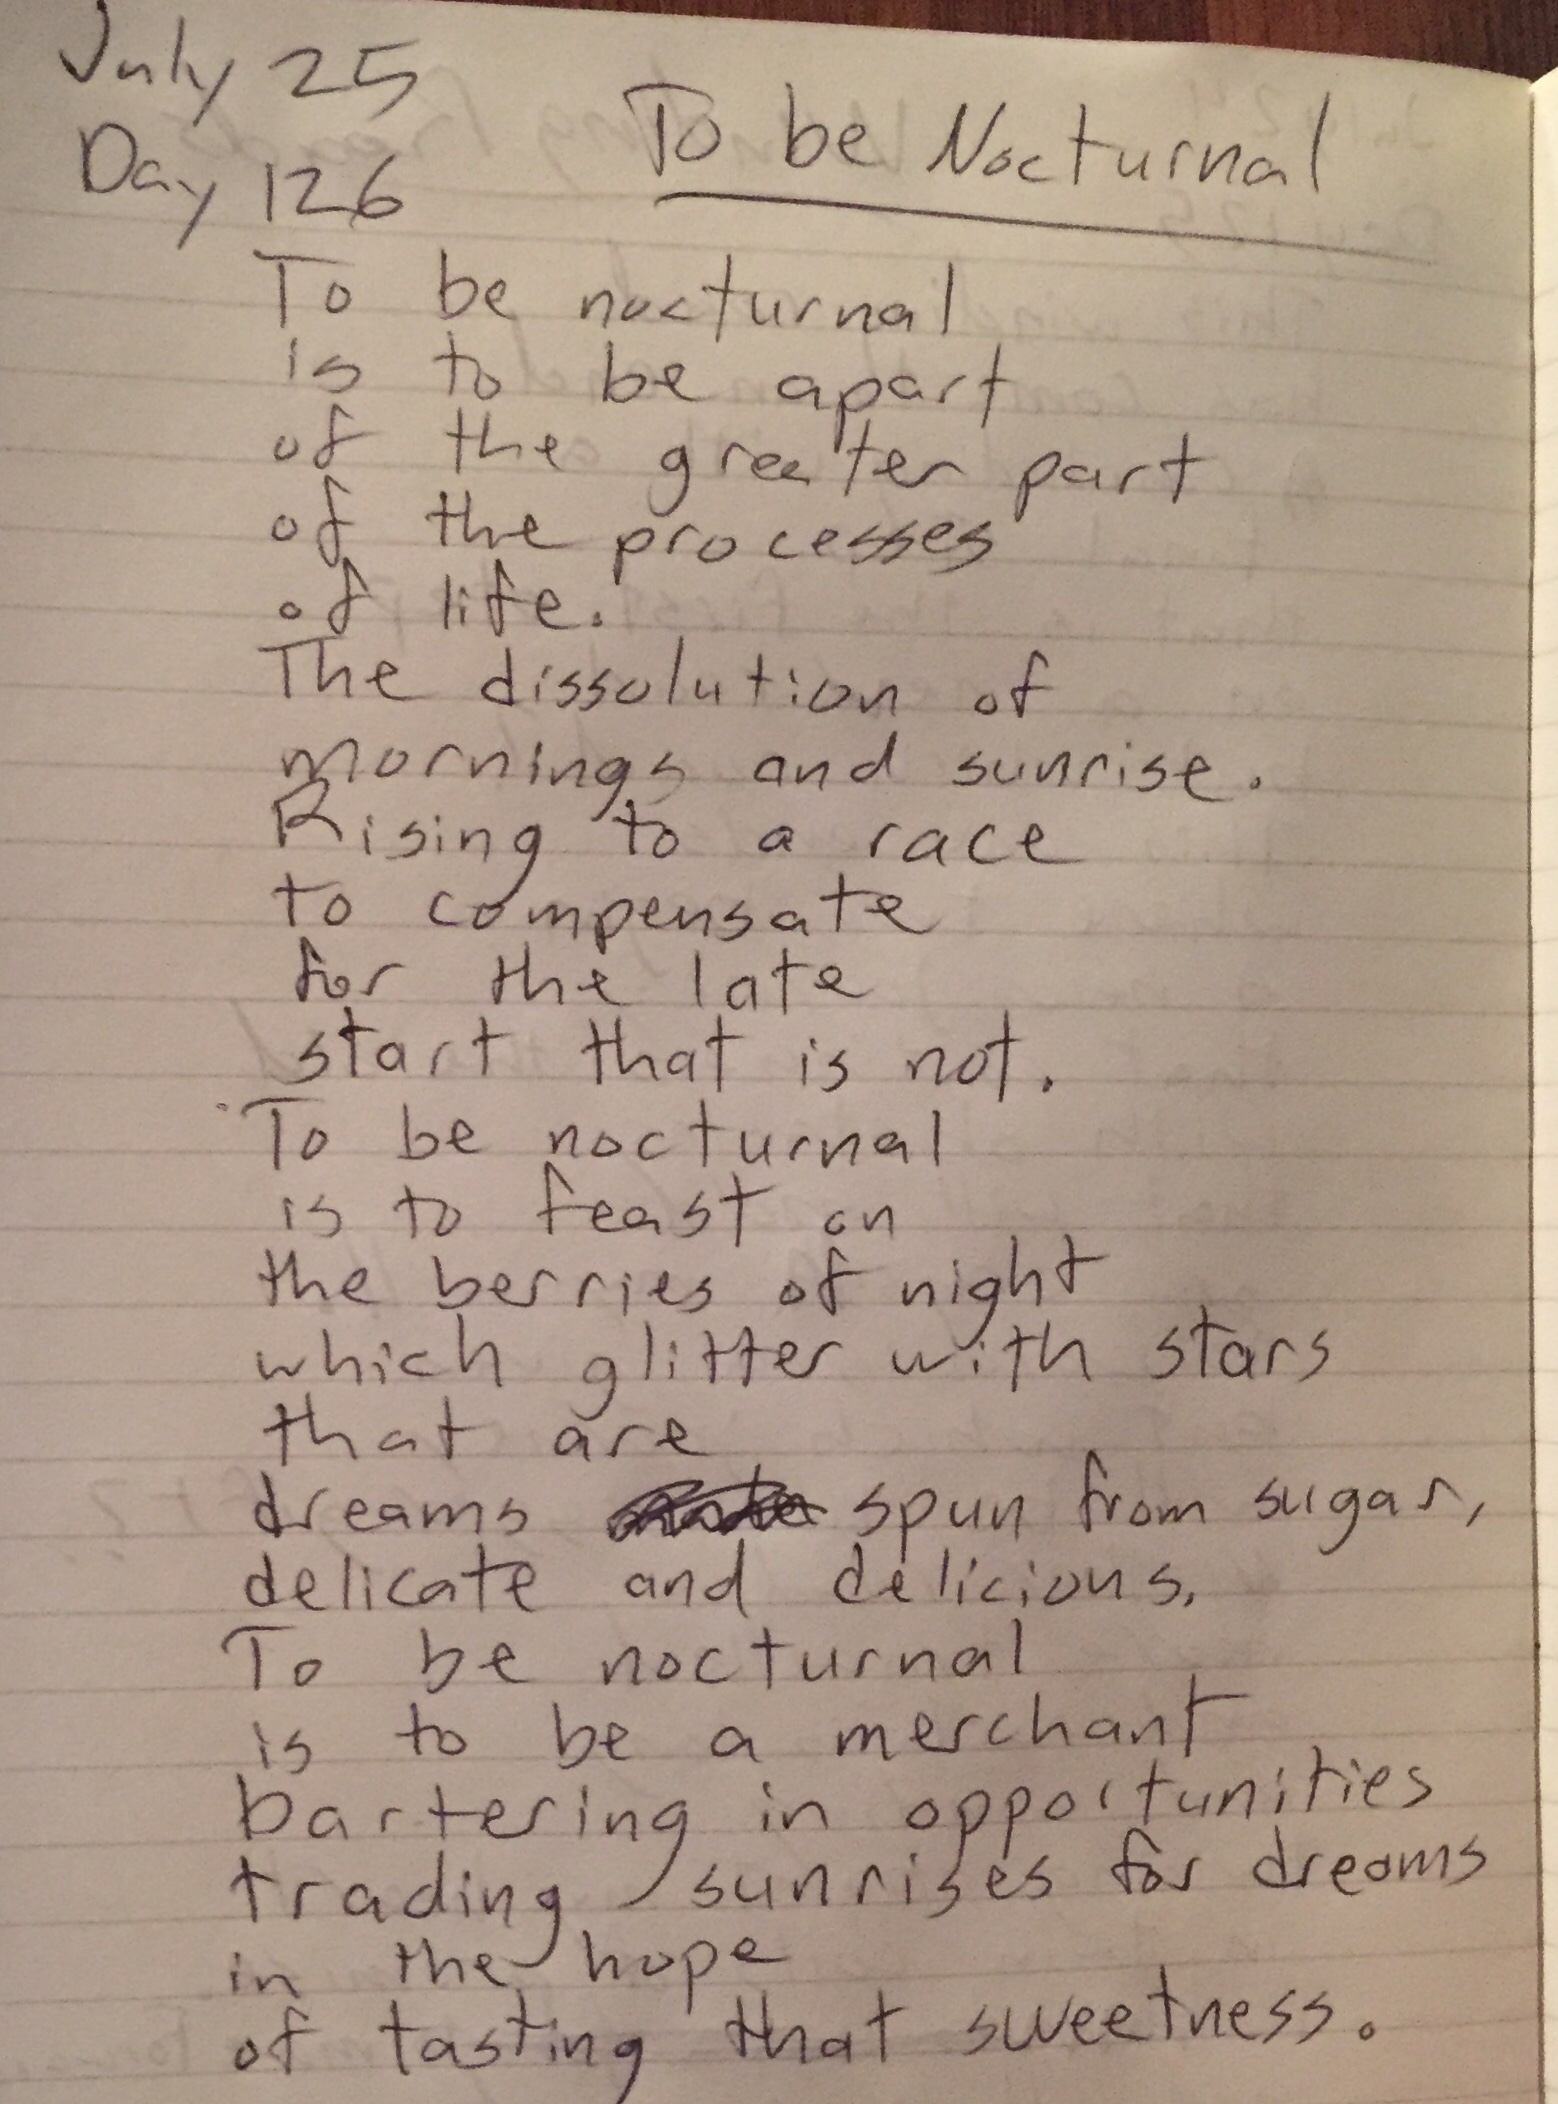 July 25
Day 126
To be Nocturnal
To be nocturnal
is to be apart
of the greater part
of the processes
of life.
The dissolution of
mornings and sunrise.
Rising to a race
to compensate
for the late
start that is not.
To be nocturnal
is to feast on
the berries of night
which glitter with stars
that are
dreams spun from sugar,
delicate and delicious.
To be nocturnal
is to be a merchant
bartering in opportunities
trading sunrises for dreams
in the hope
of tasting that sweetness.